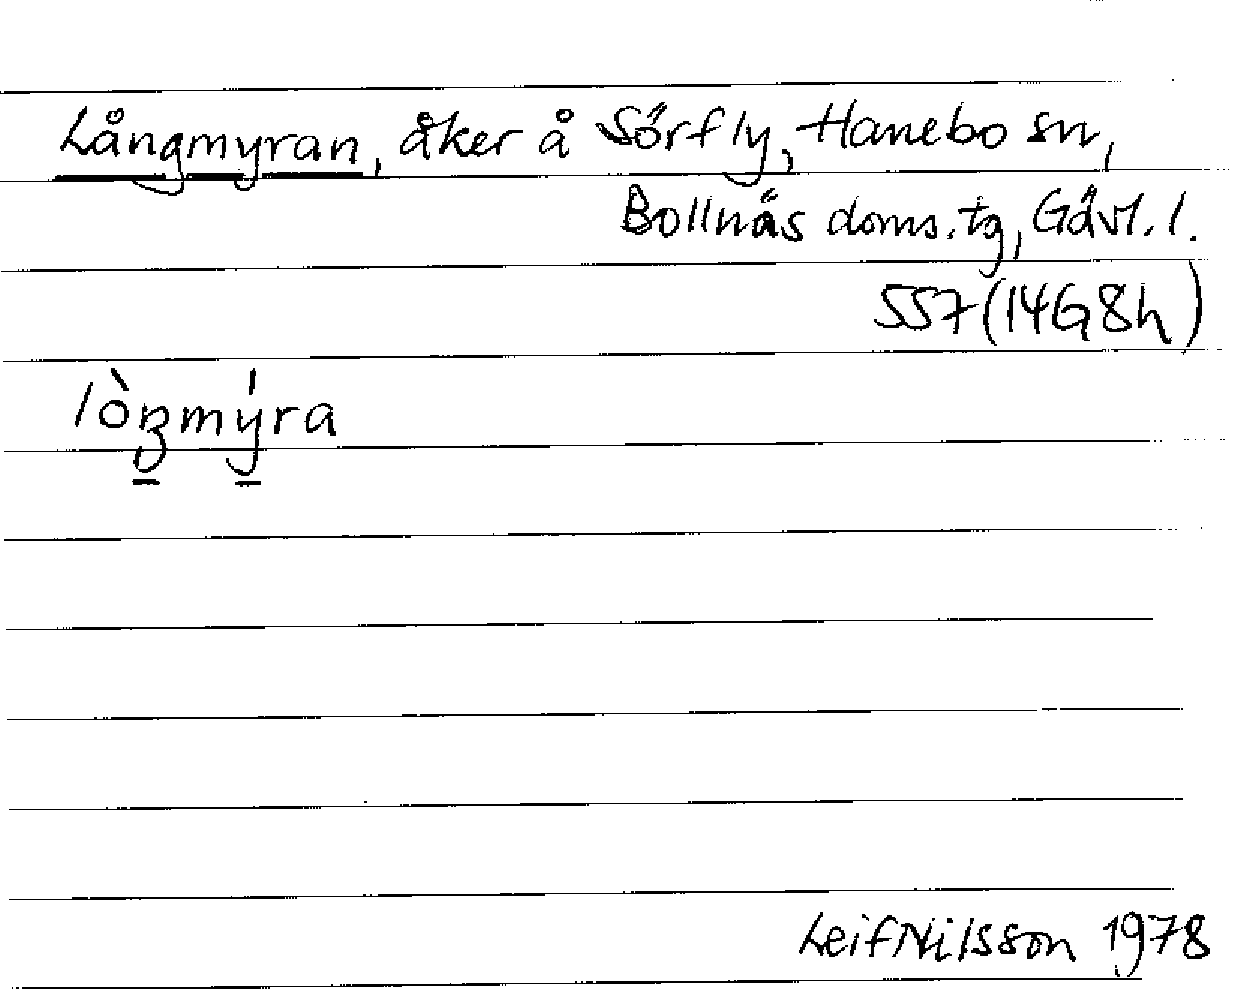 Långmyran, åker å Sörfly, Hanebo sn,
Bollnäs doms.tg, Gävl. l.
557 (14G8h)
lòŋmýra
Leif Nilsson 1978